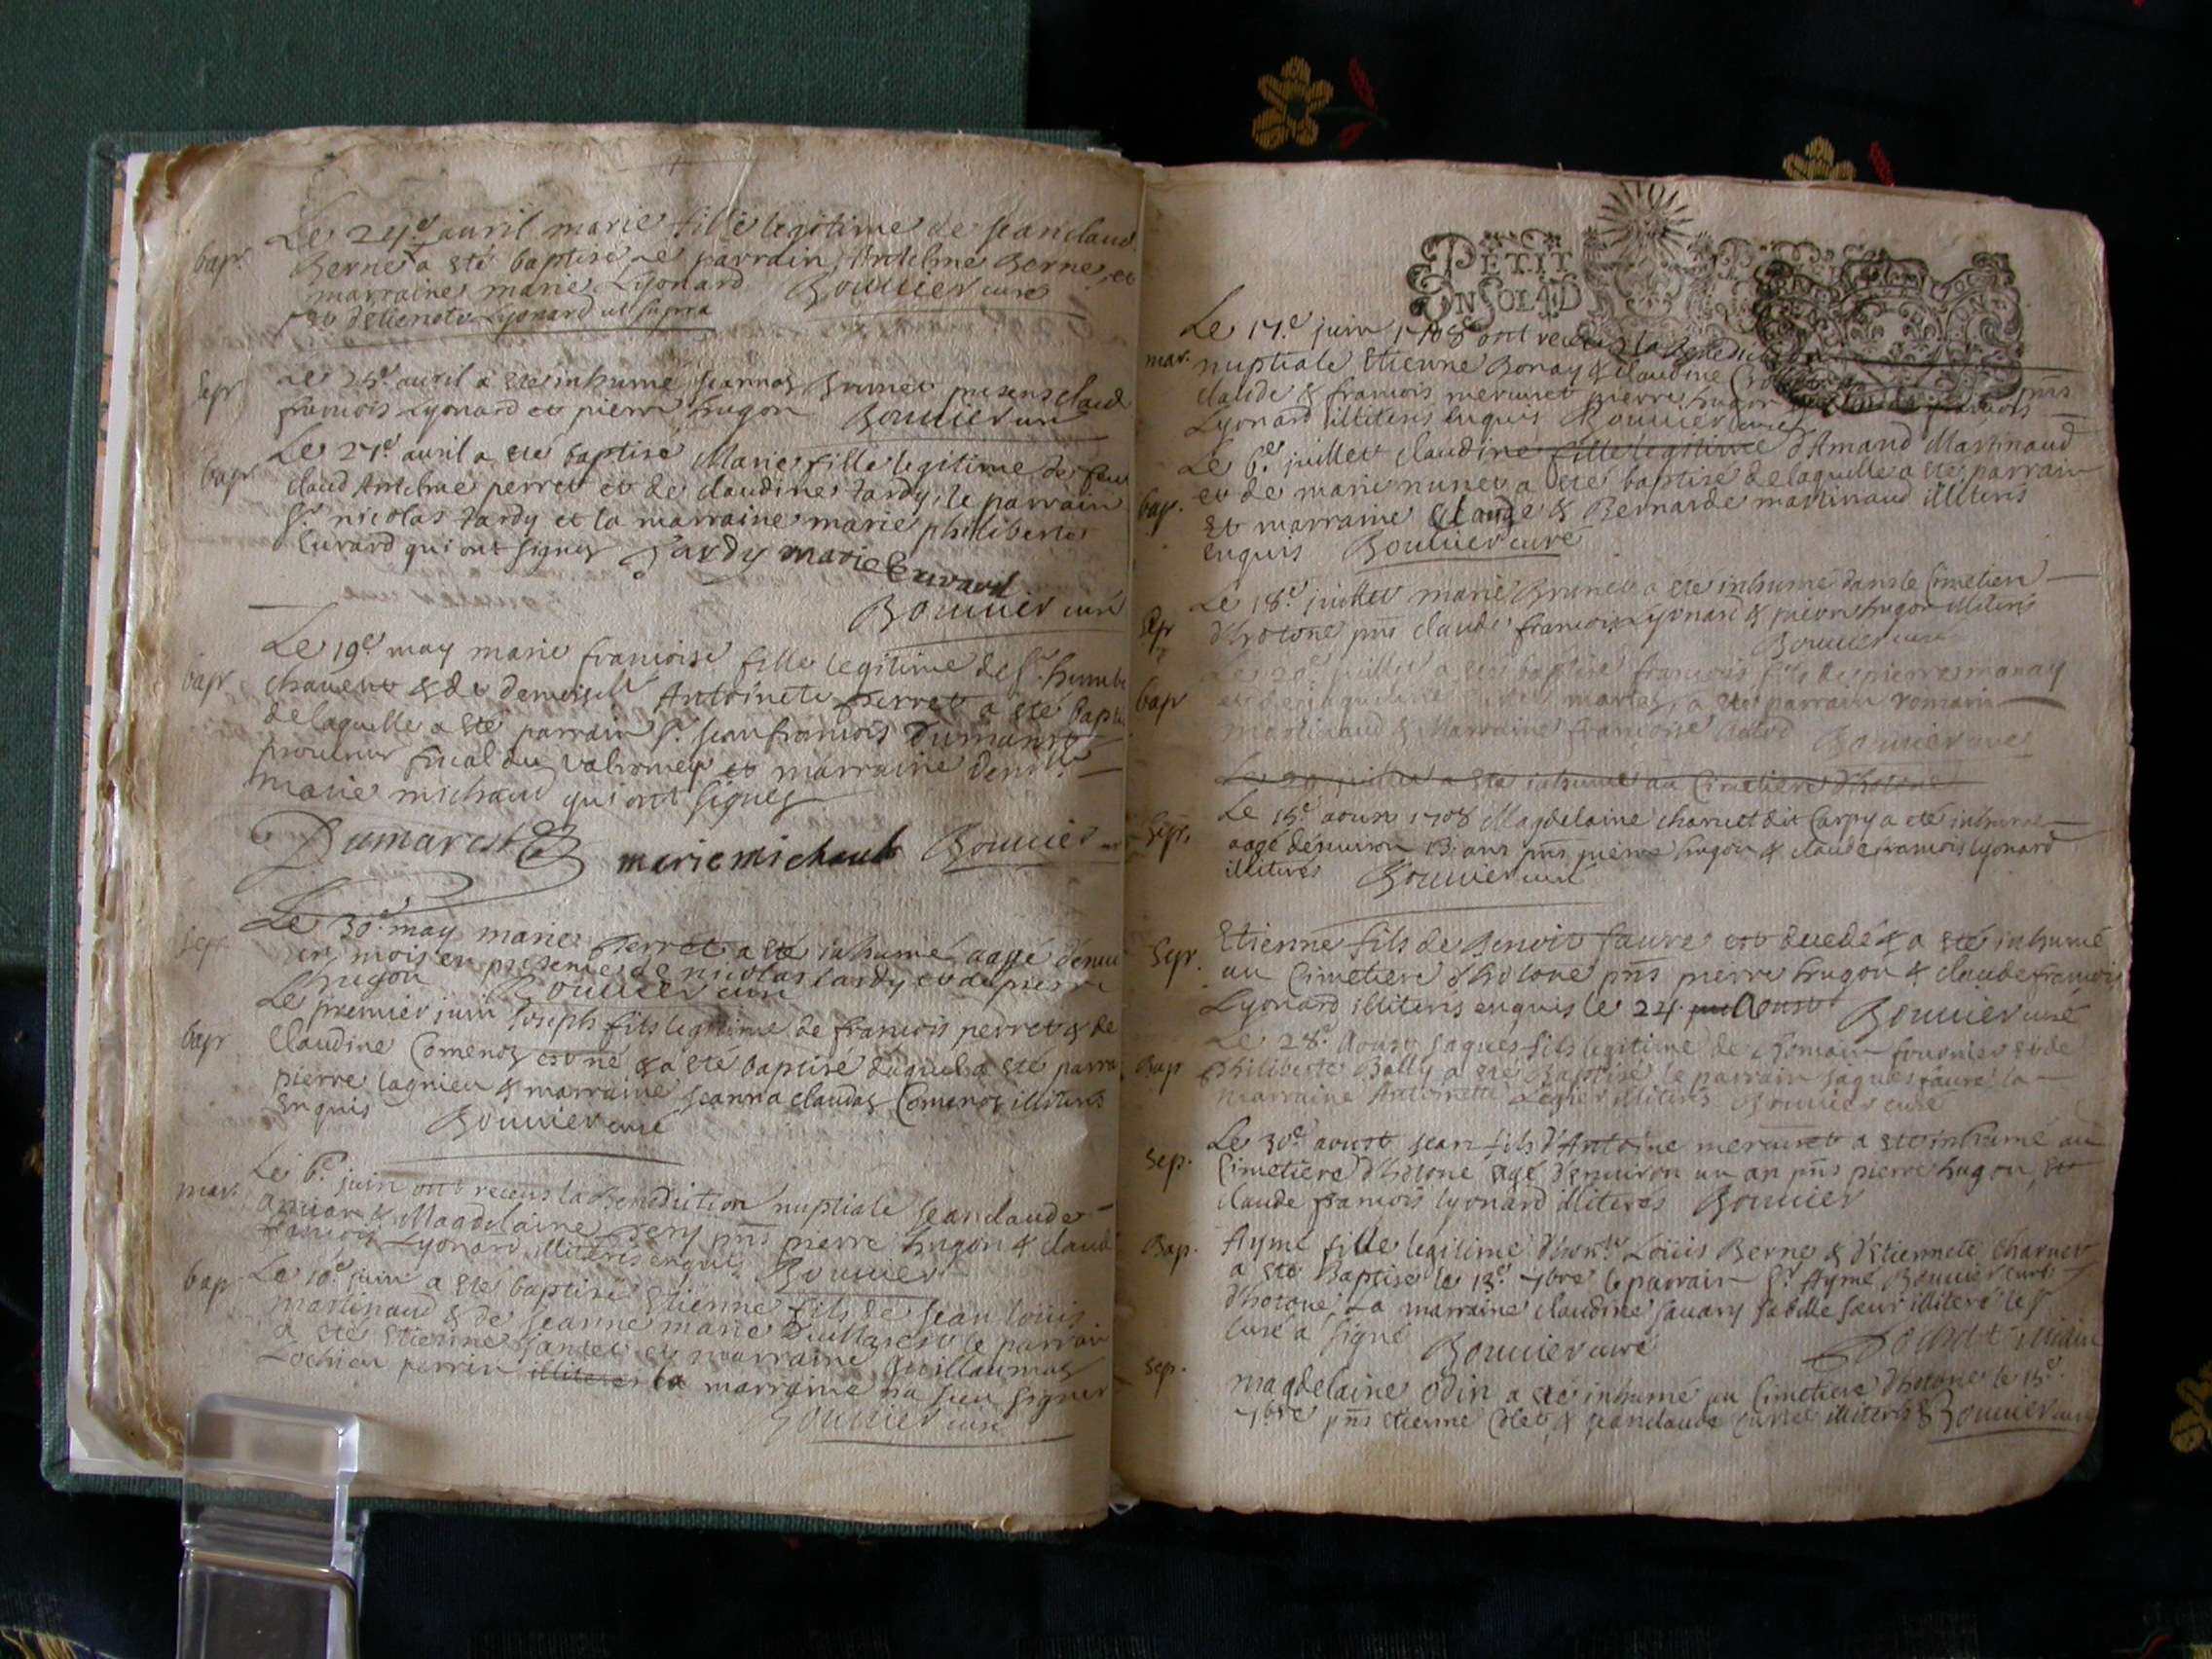 Le 24e avril marie fille legitime de Jean claud
bapt. Berne a eté baptisé le parrain Antelme Berne, et
marraine marie Lyonard Bouuier curé
et d'etienete Lyonard ut supra
Sep Le 25e avril a eté inhumé Brunet presens claud
francois Lyonard et pierre hugon Bouuier curé
Le 27e avril a eté baptisé Marie fille legitime de feu
bapt claud Antelme perret et de claudine tardy, le parrain
Sr nicolas tardy et la marraine marie philiberte
Euvrard qui ont signez Tardy marie Euvrard
Bouuier curé
Le 19e may marie francoise fille legitime de Sr humb
bapt et de demoiselle Antoinete perret a eté bapti
de laquelle a eté parrain Sr Jean francois Dumarest
procureur fiscal du valromey et marraine demlle
marie michaud qui ont signez
Dumarest marie michaud Bouuier
Le 30e may marie perret a eté inhumé, aagé d'enui
Sep un mois en presence de nicolas tardy et de pierre
hugon Bouuier curé
Le premier juin Joseph fils legitime de francois perret & de
bapt Claudine Comenoz est né & a eté baptisé duquel a eté parra
pierre lagnieu & marraine Jeanna claudaz Comenoz illiteres
enquis Bouuier curé
Le 6e juin ont receus la Benediction nuptiale Jean claude
mar. & Magdelaine pns pierre hugon & claud
francois Lyonard illiteres enquis Bouuier
bap Le 10e juin a eté baptisé Etienne fils de Jean louis
martinaud & de Jeanne marie le parrain
a eté Etienne et marraine Guillaumaz
Lochieu perrin illiteres la marraine na sceu signer
Bouuier curé
PETIT
EN SOL 4D
Le 17e juin 1708 ont receus la Benediction
mar. nuptiale Etienne Bonay & claudine
claude & francois mercuret pierre hugon
Lyonard illiteres enquis Bouuier curé
Le 6e juillet claudine fille legitime d'Amand Martinaud
et de marie nunet a eté baptisé de laquelle a eté parrain
bap. et marraine claude & Bernarde martinaud illiteres
enquis Bouuier curé
Le 18e juillet marie Brunet a eté inhumé dans le Cimetiere
Sep d'hotone pns claude francois Lyonard & pierre hugon illiteres
Bouuier curé
Le 20e juillet a eté baptisé francois fils de pierre monay
bap et de martez, a eté parrain romain
martinaud & Marraine francoise Bouuier curé
Le 29 juillet a eté inhumé au Cimetiere d'hotone
Le 15e aoust 1708 Magdelaine charuet dit Carpy a eté inhumé
Sep. aagé denuiron 13 ans pns pierre hugon & claude francois Lyonard
illiteres Bouuier curé
Etienne fils de Benoit faure est decedé & a eté inhumé
Sep. au Cimetiere d'hotone pns pierre hugon & claude francois
Lyonard illiteres enquis le 24 Aoust Bouuier curé
Le 28e Aoust Jaques fils legitime de Romain fournier et de
Bap philiberte Bally a eté Baptisé le parrain Jaques faure la
marraine Antoinette illiteres Bouuier curé
Le 30e aoust Jean fils d'Antoine mercuret a eté inhumé au
Sep. Cimetiere d'hotone agé d'enuiron un an pns pierre hugon, et
claude francois Lyonard illiteres Bouuier
Bap. Aymé fille legitime Loüis Berne & d'Etiennete Charuet
a eté Baptisé le 13e 7bre le parrain Sr Aymé Bouuier curé
d'hotone, La marraine claudine sauary sa belle sœur illiteré le Sr
curé a signé Bouuier curé
Sep. magdelaine odin a eté inhumé au Cimetiere d'hotone le 15e
7bre pns Etienne & Jean claude illiteres Bouuier curé